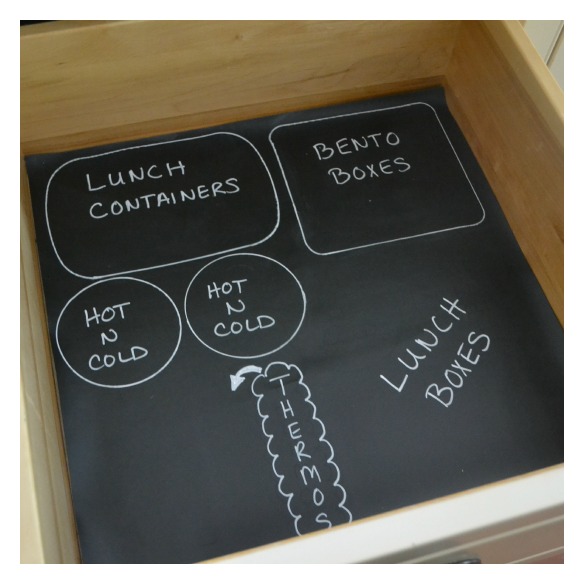 LUNCH
CONTAINERS
BENTO
BOXES
HOT
N
COLD
HOT
N
COLD
LUNCH
BOXES
THERMOS